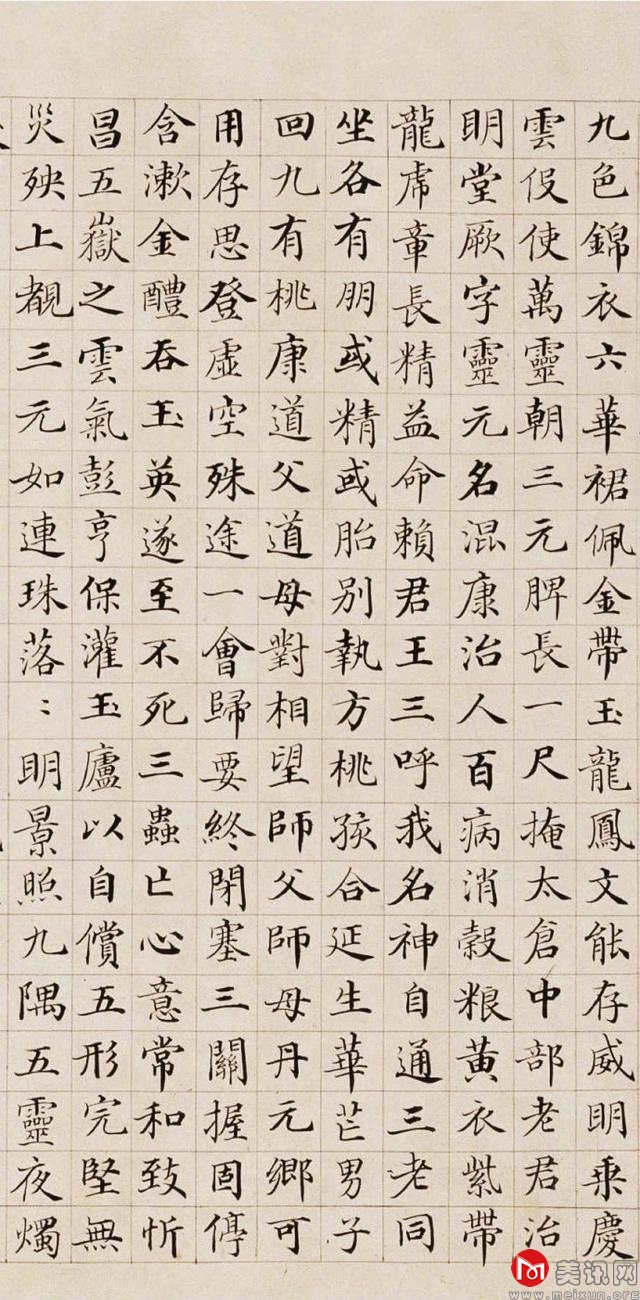 九色錦衣六華裙佩金帶玉龍鳳文能存威明乘慶
雲伇使萬靈朝三元脾長一尺掩太倉中部老君治
明堂厥字靈元名混康治人百病消穀粮黃衣紫帶
龍虎章長精益命賴君王三呼我名神自通三老同
坐各有朋或精或胎別執方桃孩合延生華芒男子
回九有桃康道父道母對相望師父師母丹元鄉可
用存思登虛空殊途一會歸要終閉塞三關握固停
含漱金醴吞玉英遂至不死三蟲亡心意常和致忻
昌五嶽之雲氣彭亨保灌玉廬以自償五形完堅無
災殃上覩三元如連珠落〻明景照九隅五靈夜燭
美讯网
www.meixun.org